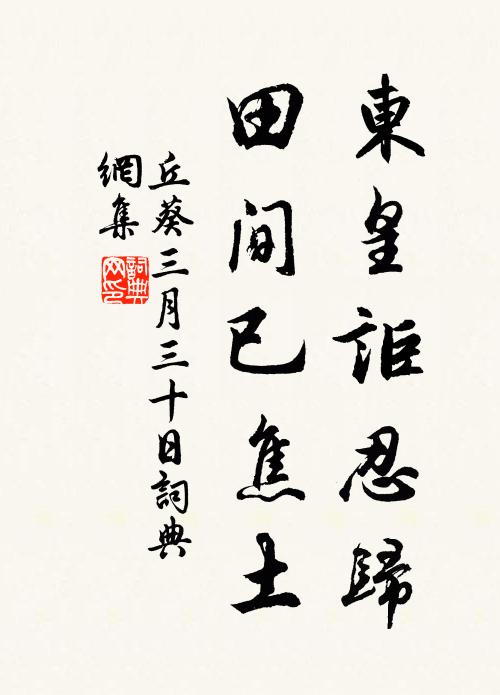 東皇詎忍歸
田間已焦土
丘葵三月三十日詞典
網集
詞典
網印